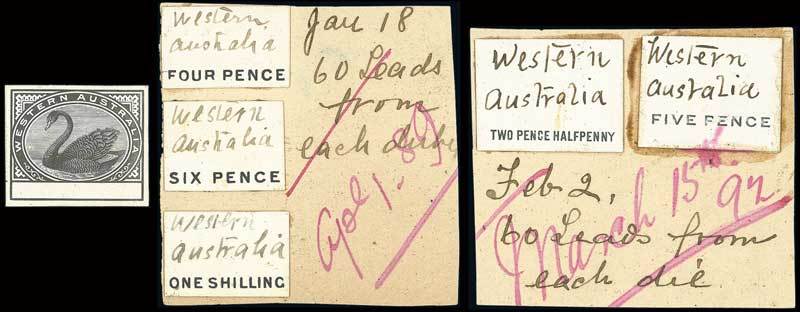 WESTERN AUSTRALIA
Western
australia
FOUR PENCE
Western
australia
SIX PENCE
Western
australia
ONE SHILLING
Jan 18
60 Leads
from
each
Apl 1. 89
Western
australia
TWO PENCE HALFPENNY
Western
australia
FIVE PENCE
Feb 2,
60 Leads from
each die
March 15th 92